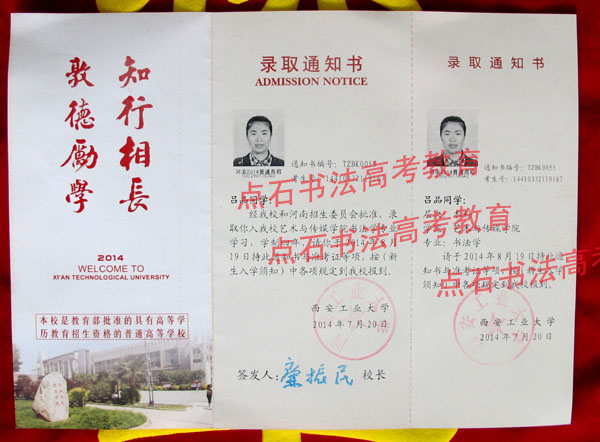 敦德勵學
知行相長
2014
WELCOME TO
XI'AN TECHNOLOGICAL UNIVERSITY
本校是教育部批准的具有高等学
历教育招生资格的普通高等学校
录取通知书
ADMISSION NOTICE
河南2014普通高招
通知书编号: TZBK0055
考生号: 14410332119167
吕品同学:
经我校和河南招生委员会批准，录
取你入我校艺术与传媒学院书法学专业
学习，学制四年，请你于2014年8月
19日持此通知书与准考证等项，按《新
生入学须知》中各项规定到我校报到。
西安工业大学
2014年7月20日
签发人: 廉振民 校长
录取通知书
河南2014普通高招
通知书编号: TZBK0055
考生号: 14410332119167
吕品同学:
层次: 本科
学院: 艺术与传媒学院
专业: 书法学
请于2014年8月19日持此通
知书与准考证等项，按《新生入学须
知》中各项规定到我校报到。
西安工业大学
2014年7月20日
点石书法高考教育
点石书法高考教育
点石书法高